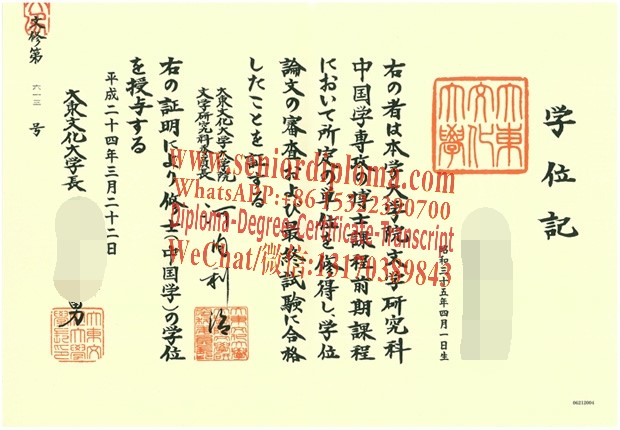 学位記
大東
文化
大學
昭和三十五年四月一日生
右の者は本学大学院文学研究科
中国学専攻の博士課程前期課程
において所定の単位を修得し、学位
論文の審査および最終試験に合格
したことを証する
大東文化大学大学院
文学研究科委員長
右の証明により修士(中国学)の学位
を授与する
平成二十四年三月二十二日
大東文化大学長
男
文修第 六一三 号
www.seniordiploma.com
WhatsAPP:+86 15322390700
Diploma-Degree-Certificate-Transcript
WeChat/微信:13170389843
06212004